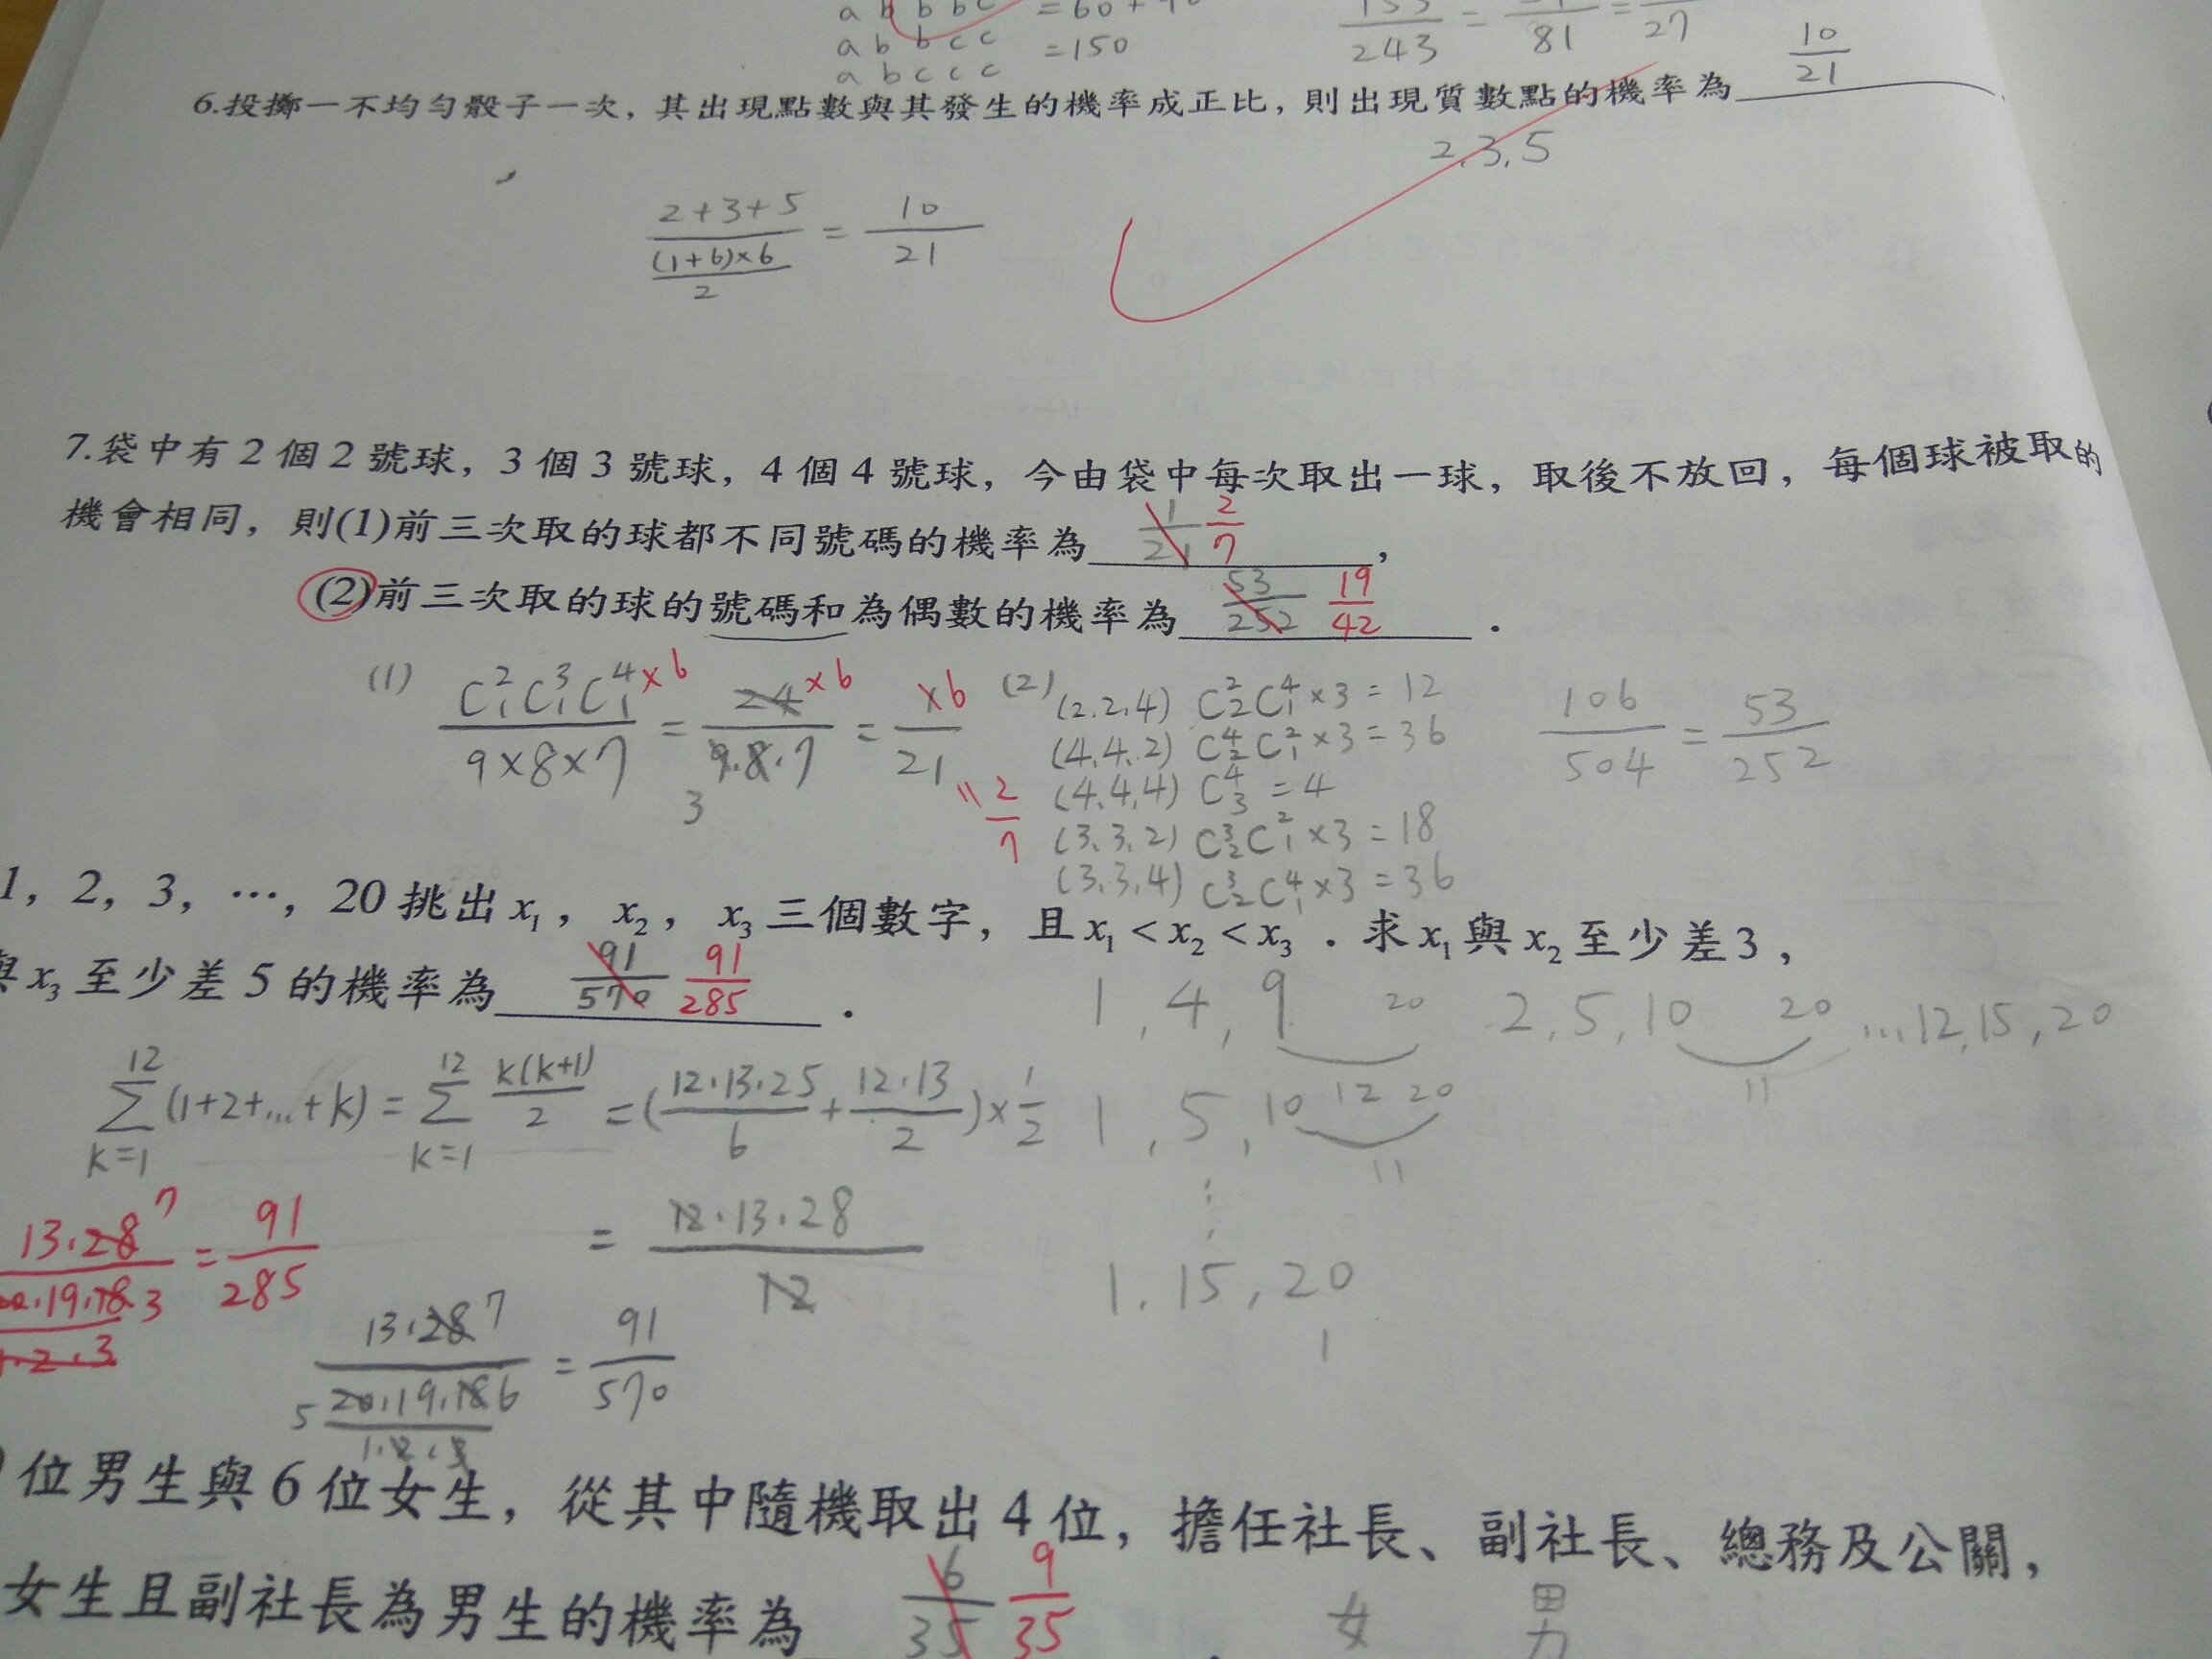 a b b b c = 60 +
a b b c c = 150
a b c c c
243 = 81 = 27
6.投擲一不均勻骰子一次，其出現點數與其發生的機率成正比，則出現質數點的機率為 10/21
2.3.5
2+3+5 / (1+6)×6 / 2 = 10/21
7.袋中有2個2號球，3個3號球，4個4號球，今由袋中每次取出一球，取後不放回，每個球被取的
機會相同，則(1)前三次取的球都不同號碼的機率為 1/21 2/7 ，
(2)前三次取的球的號碼和為偶數的機率為 53/252 19/42 ．
(1) C²₁C³₁C⁴₁×6 / 9×8×7 = 24×6 / 9.8.7 = ×6 / 21
3
= 2/7
(2) (2.2.4) C²₂C⁴₁×3 = 12
(4.4.2) C⁴₂C²₁×3 = 36
(4.4.4) C⁴₃ = 4
(3.3.2) C³₂C²₁×3 = 18
(3.3.4) C³₂C⁴₁×3 = 36
106/504 = 53/252
1，2，3，…，20挑出x₁，x₂，x₃三個數字，且x₁<x₂<x₃．求x₁與x₂至少差3，
與x₃至少差5的機率為 91/570 91/285 ．
1,4,9 20
2,5,10 20 ...12,15,20
11
1,5,10 12 20
11
⋮
1,15,20
1
12 Σ k=1 (1+2+...+k) = 12 Σ k=1 k(k+1)/2 = (12·13·25/6 + 12·13/2)×1/2
= 12·13·28 / 12
13·28 7 / 20·19·18 3 / 1·2·3 = 91/285
13·28 7 / 5 20·19·18 6 / 1·2·3 = 91/570
位男生與6位女生，從其中隨機取出4位，擔任社長、副社長、總務及公關，
女生且副社長為男生的機率為 6/35 9/35 ．
女 男